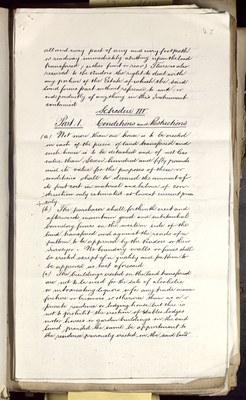 all and every part of any and every footpath
or roadway immediately abutting upon the land
transferred, either front or rear. There is also
reserved to the Vendors the right to deal with
any portion of the Estate of which the said
land forms part without reference to and
independently of anything in this Instrument
contained
Schedule III
Part. 1. Conditions and Restrictions
(a) Not more than one house is to be erected
on each of the pieces of land transferred and
each house is to be detached and of not less
value than Seven hundred and fifty pounds
and the value for the purposes of these
conditions shall be deemed the amount of
its first cost in material and labour of con-
struction only estimated at lowest current prices
only
(b) The purchaser shall forthwith erect and
afterwards maintain good and substantial
boundary fences on the side of the
land transferred and against the roads of a
pattern to be approved by the Vendors or their
Surveyor. No boundary walls or fences shall
be erected except of a quality and pattern to
be approved as last aforesaid
(c) The buildings erected on the land transferred
are not to be used for the sale of alcoholic
or intoxicating liquors or for any trade manu-
facture or business or otherwise than as a
private residence or lodging house but this is
not to prohibit the erection of stables lodges
motor houses or garden buildings on the said
land provided the same be appurtenant to
the residence previously erected on the said land